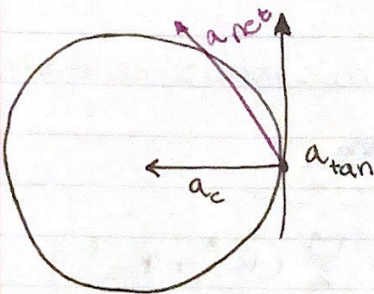 a net
a tan
a c